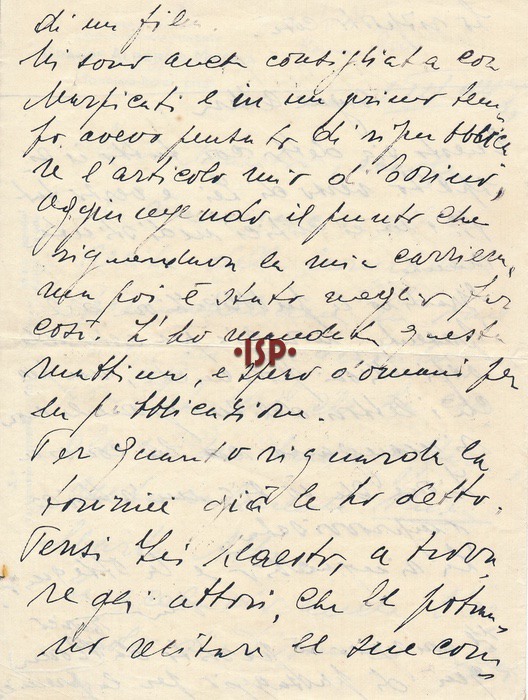 di un film.
Mi sono anche consigliata con
Marficati e in un primo tem
po avevo pensato di ripubblica
re l'articolo mio d'
aggiungendo il punto che
riguardava la mia carriera,
ma poi è stato meglio far
così. L'ho mandata questa
mattina, e spero domani per
la pubblicazione.
Per quanto riguarda la
tournée già le ho detto.
Pensi Lei Maestro, a trova
re gli attori, che le potran
no recitare le sue com
·ISP·